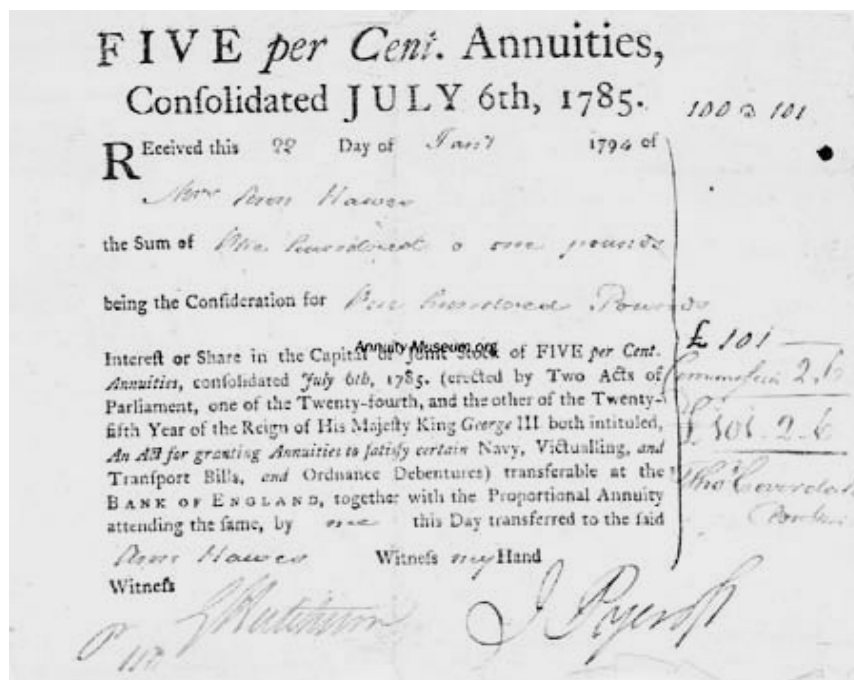 FIVE per Cent. Annuities,
Conſolidated JULY 6th, 1785.
100 a 101
REceived this 22 Day of Jany 1794 of
Mrs Ann Hawes
the Sum of One hundred & one pounds
being the Conſideration for One hundred Pounds
Annuity Museum.org
Intereſt or Share in the Capital or Joint Stock of FIVE per Cent.
Annuities, conſolidated July 6th, 1785. (erected by Two Acts of
Parliament, one of the Twenty-fourth, and the other of the Twenty-
fifth Year of the Reign of His Majeſty King George III both intituled,
An Act for granting Annuities to ſatisfy certain Navy, Victualling, and
Tranſport Bills, and Ordnance Debentures) tranſferable at the
BANK OF ENGLAND, together with the Proportional Annuity
attending the ſame, by me this Day transferred to the ſaid
Ann Hawes Witneſs my Hand
Witneſs
£ 101
Commiſsion 2.6
£ 101.2.6
Thos Coverdale